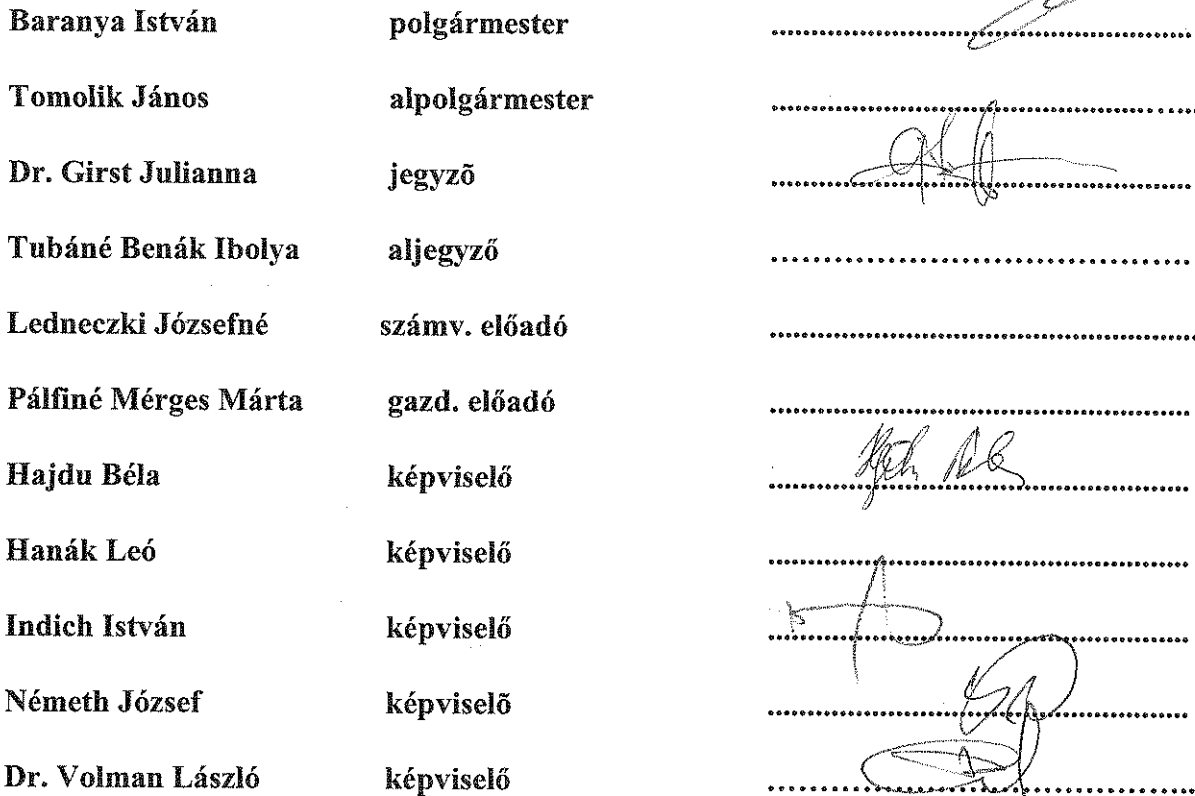 Baranya István polgármester ........................................
Tomolik János alpolgármester ........................................
Dr. Girst Julianna jegyzõ ........................................
Tubáné Benák Ibolya aljegyző ........................................
Ledneczki Józsefné számv. előadó ........................................
Pálfiné Mérges Márta gazd. előadó ........................................
Hajdu Béla képviselő ........................................
Hanák Leó képviselő ........................................
Indich István képviselő ........................................
Németh József képviselõ ........................................
Dr. Volman László képviselő ........................................